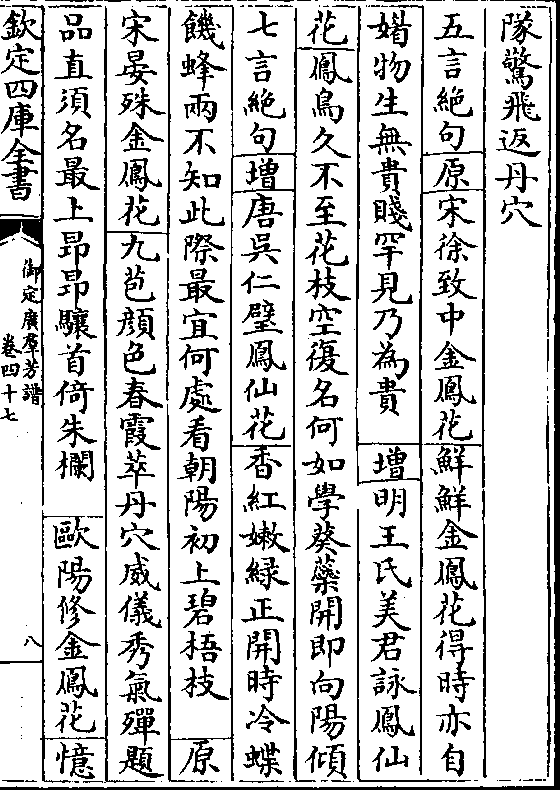 隊驚飛返丹穴
五言絶句原宋徐致中金鳳花鮮鮮金鳳花得時亦自
媘物生無貴賤罕見乃為貴增明王氏美君詠鳳仙
花鳳鳥久不至花枝空復名何如學葵藥開即向陽傾
七言絶句增唐吳仁璧鳳仙花香紅嫩緑正開時冷蝶
饑蜂兩不知此際最宜何處看朝陽初上碧梧枝原
宋晏殊金鳳花九苞顏色春霞萃丹穴威儀秀氣殫題
品直須名最上昂昂驤首倚朱欄歐陽修金鳳花憶
欽定四庫全書
御定廣羣芳譜
卷四十七
八